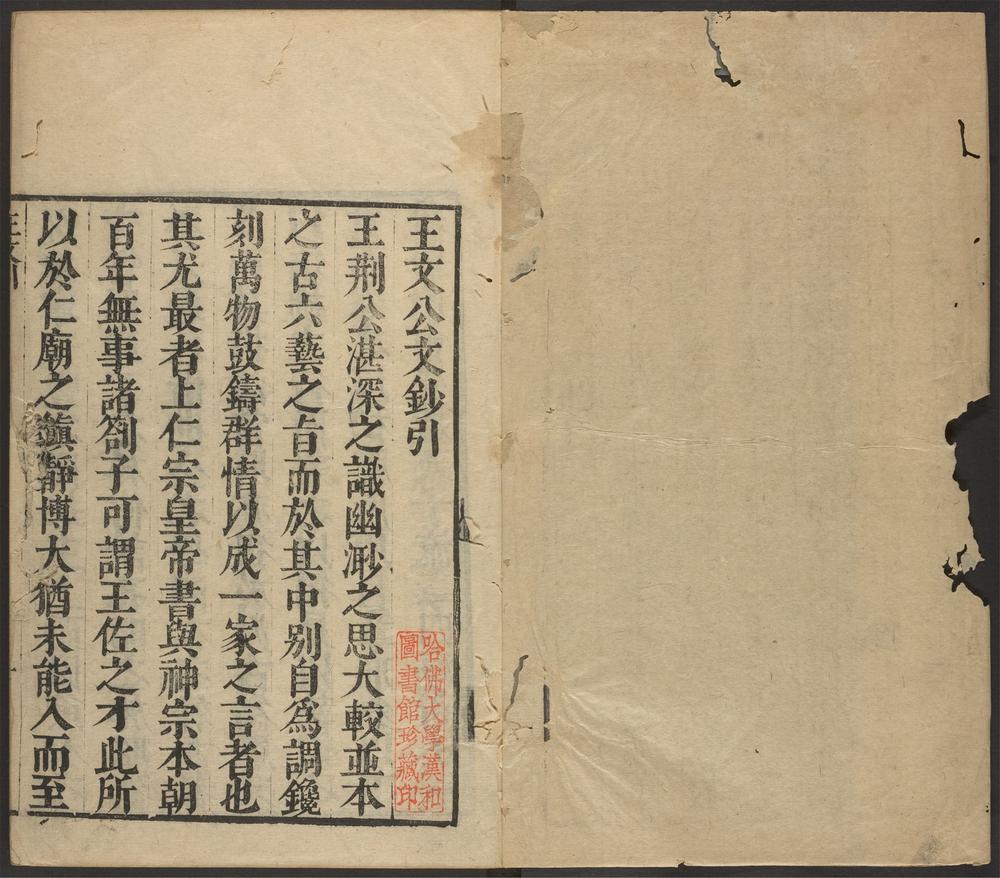 王文公文鈔引
王荆公湛深之識幽渺之思大較並本
之古六藝之旨而於其中别自爲調鑱
刻萬物鼓鑄群情以成一家之言者也
其尤最者上仁宗皇帝書與神宗本朝
百年無事諸劄子可謂王佐之才此所
以於仁廟之鎭靜博大猶未能入而至
哈佛大學漢和
圖書館珍藏印